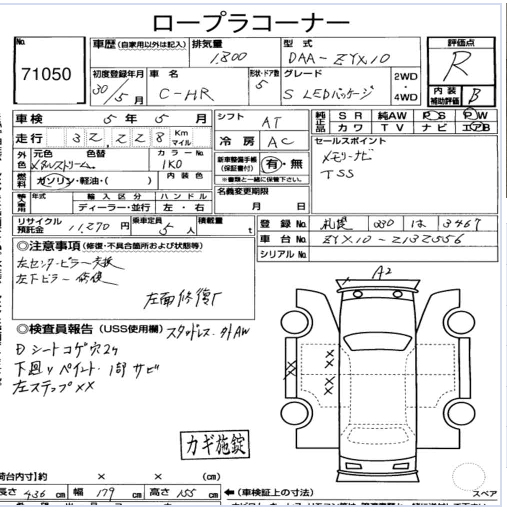 ロープラコーナー
No.
71050
車歴 (自家用以外は記入)
排気量
1,800
型式
DAA-ZYX10
評価点
R
初度登録年月
30年5月
車名
C-HR
形状・ドア数
5
グレード
S LEDパッケージ
2WD
4WD
内装
補助評価
B
車検
5年5月
走行
32,228
Km
マイル
シフト
AT
冷房
AC
純正品
SR 純AW PS PW
カワ TV ナビ エアB
セールスポイント
メモリーナビ
TSS
外色
元色
色替
メタルストリーム
カラーNo.
1K0
燃料
ガソリン・軽油・( )
内装色
新車整備手帳
(保証書付)
有・無
※書類と一緒に保管下さい。
輸入車
年式
輸入区分
ハンドル
ディーラー・並行
左・右
名義変更期限
月 日
リサイクル
預託金
11,270円
乗車定員
5人
積載量
t
登録No.
札幌 330 は 3467
車台No.
ZYX10-2132556
シリアルNo.
◎注意事項 (修復・不具合箇所および状態等)
左センターピラー交換
左下ピラー修復
左面修復歴
A2
◎検査員報告 (USS使用欄)
スタッドレス・外AW
Dシートコゲ穴2ケ
下廻りペイント・1部サビ
左ステップXX
カギ施錠
荷台内寸 × × (cm)
長さ 436 cm 幅 179 cm 高さ 155 cm
←(車検証上の寸法)
スペア